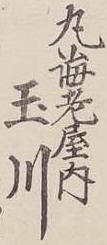 丸海老屋内
玉川